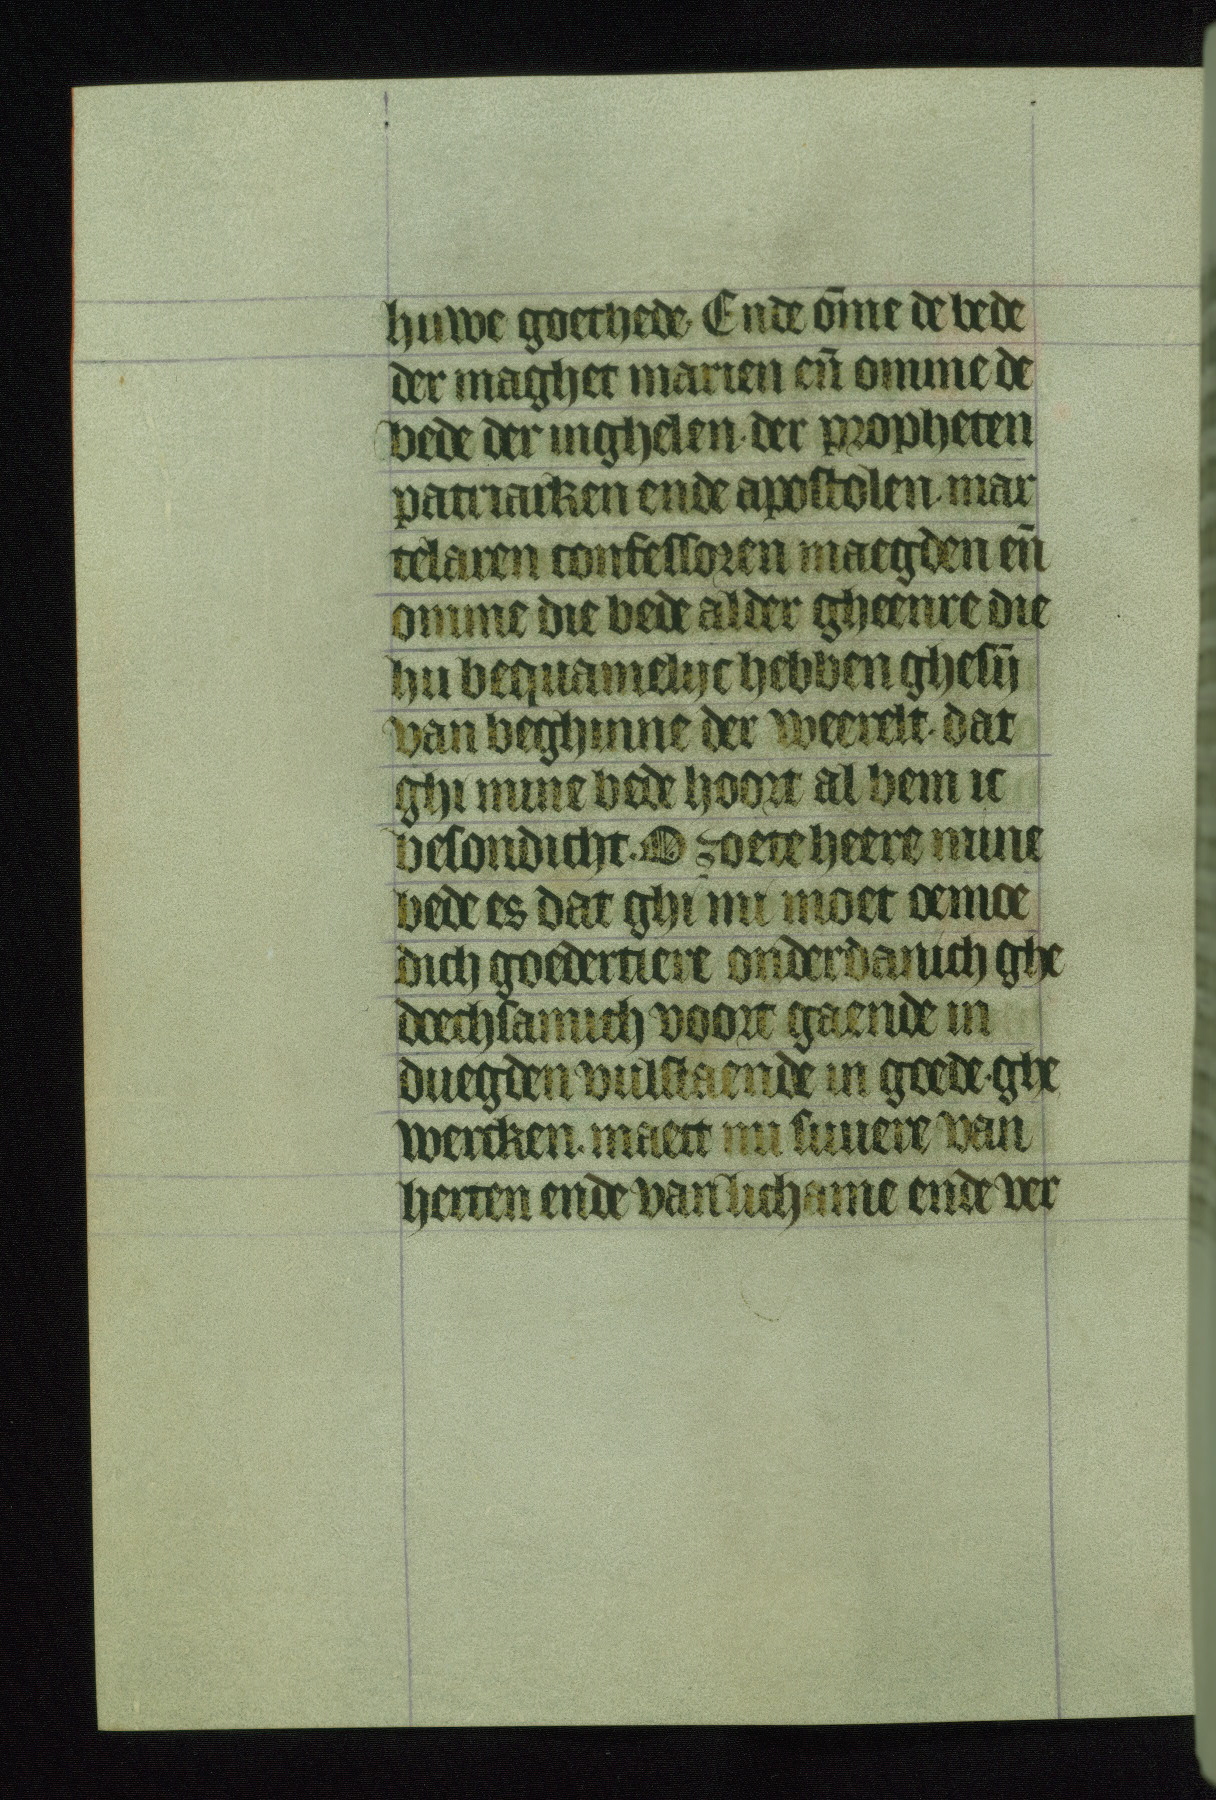 huwe goethede. Ende o̅me de bede
der maghet marien en̅ omme de
bede der inghelen. der propheten
patriarken ende apostolen. mar
telaren confessoren maegden en̅
omme die bede alder gheenre die
hu bequamelijc hebben ghesij̅
van beghinne der weerelt. dat
ghi mine bede hoort al bem ic
besondicht. O zoete heere mine
bede es dat ghi mi moet oemoe
dich goedertiere onderdanich ghe
doechsamich voort gaende in
duegden vulstaende in goede. ghe
wercken. maect mi suuere van
herten ende van lichame ende ver